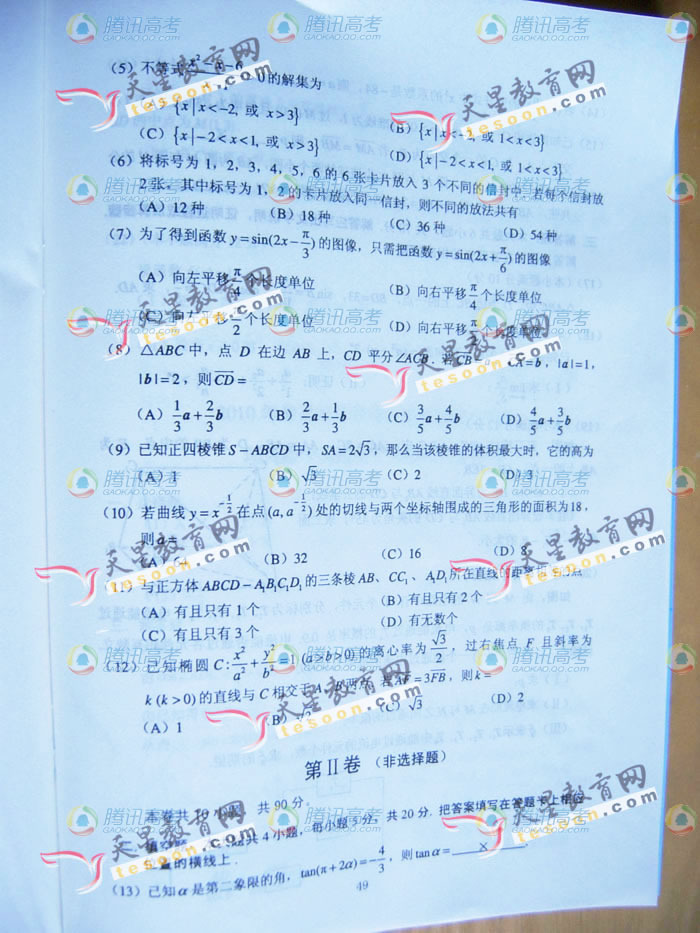 (5) 不等式 x² 6 0的解集为
{x|x<-2, 或 x>3} (B) {x|x< , 或 1<x<3}
(C) {x|-2<x<1, 或 x>3} (D) {x|-2<x<1, 或 1<x<3}
(6) 将标号为 1, 2, 3, 4, 5, 6 的 6 张卡片放入 3 个不同的信封中. 若每个信封放
2 张, 其中标号为 1, 2 的卡片放入同一信封, 则不同的放法共有
(A) 12 种 (B) 18 种 (C) 36 种 (D) 54 种
(7) 为了得到函数 y=sin(2x-π/3) 的图像, 只需把函数 y=sin(2x+π/6) 的图像
(A) 向左平移 π/4 个长度单位 (B) 向右平移 π/4 个长度单位
(C) 向左平移 π/2 个长度单位 (D) 向右平移 个长度单位
(8) △ABC 中, 点 D 在边 AB 上, CD 平分∠ACB. 若 CB = , CA = b, |a|=1,
|b|=2, 则 CD =
(A) 1/3 a + 2/3 b (B) 2/3 a + 1/3 b (C) 3/5 a + 4/5 b (D) 4/5 a + 3/5 b
(9) 已知正四棱锥 S-ABCD 中, SA=2√3, 那么当该棱锥的体积最大时, 它的高为
(A) 1 (B) √3 (C) 2 (D) 3
(10) 若曲线 y=x^(-1/2) 在点 (a, a^(-1/2)) 处的切线与两个坐标轴围成的三角形的面积为 18,
则 a=
(B) 32 (C) 16 (D) 8
(11) 与正方体 ABCD-A₁B₁C₁D₁ 的三条棱 AB、CC₁、A₁D₁ 所在直线的距离 点
(A) 有且只有 1 个 (B) 有且只有 2 个
(C) 有且只有 3 个 (D) 有无数个
(12) 已知椭圆 C: x²/a² + y²/b² =1 (a>b>0) 的离心率为 √3/2, 过右焦点 F 且斜率为
k (k>0) 的直线与 C 相交于 A、B 两点. 若 AF=3FB, 则 k=
(A) 1 (B) √2 (C) √3 (D) 2
第Ⅱ卷 (非选择题)
本卷共 10 小题, 共 90 分.
填空题 共 4 小题, 每小题 5 分, 共 20 分. 把答案填写在答题卡上相应
位置的横线上.
(13) 已知 α 是第二象限的角, tan(π+2α)=-4/3, 则 tanα= ×
49
腾讯高考
GAOKAO.QQ.COM
天星教育网
tesoon.com